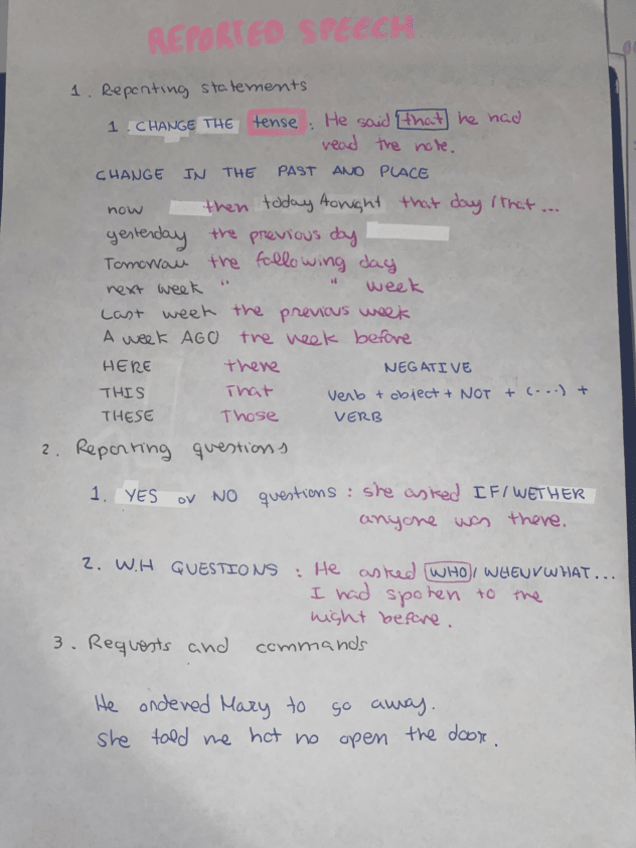 REPORTED SPEECH
1. Reporting statements
1. CHANGE THE tense : He said that he had
read the note.
CHANGE IN THE PAST AND PLACE
now then today tonight that day / that ...
yesterday the previous day
Tomorrow the following day
next week " " week
Last week the previous week
A week AGO the week before
HERE there NEGATIVE
THIS That Verb + object + NOT + (...) +
THESE Those VERB
2. Reporting questions
1. YES or NO questions : she asked IF/WETHER
anyone was there.
2. W.H QUESTIONS : He asked WHO/ WHEN/WHAT...
I had spoken to the
night before.
3. Requests and commands
He ordered Mary to go away.
She told me not no open the door.